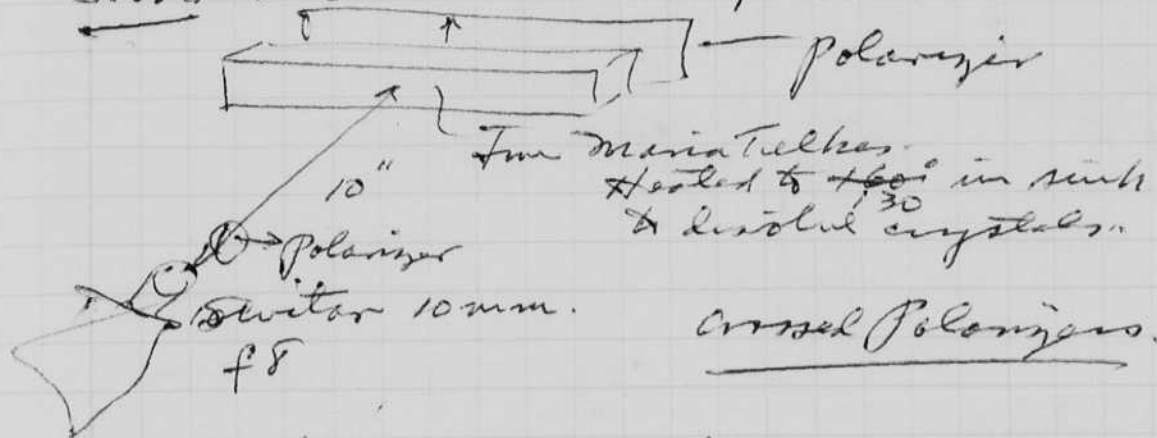 polarizer
From Maria Telkes.
Heated to 160° in sink
130
to disolve crystals.
10"
Polarizer
Switar 10 mm.
f 8
Crossed Polarizers.